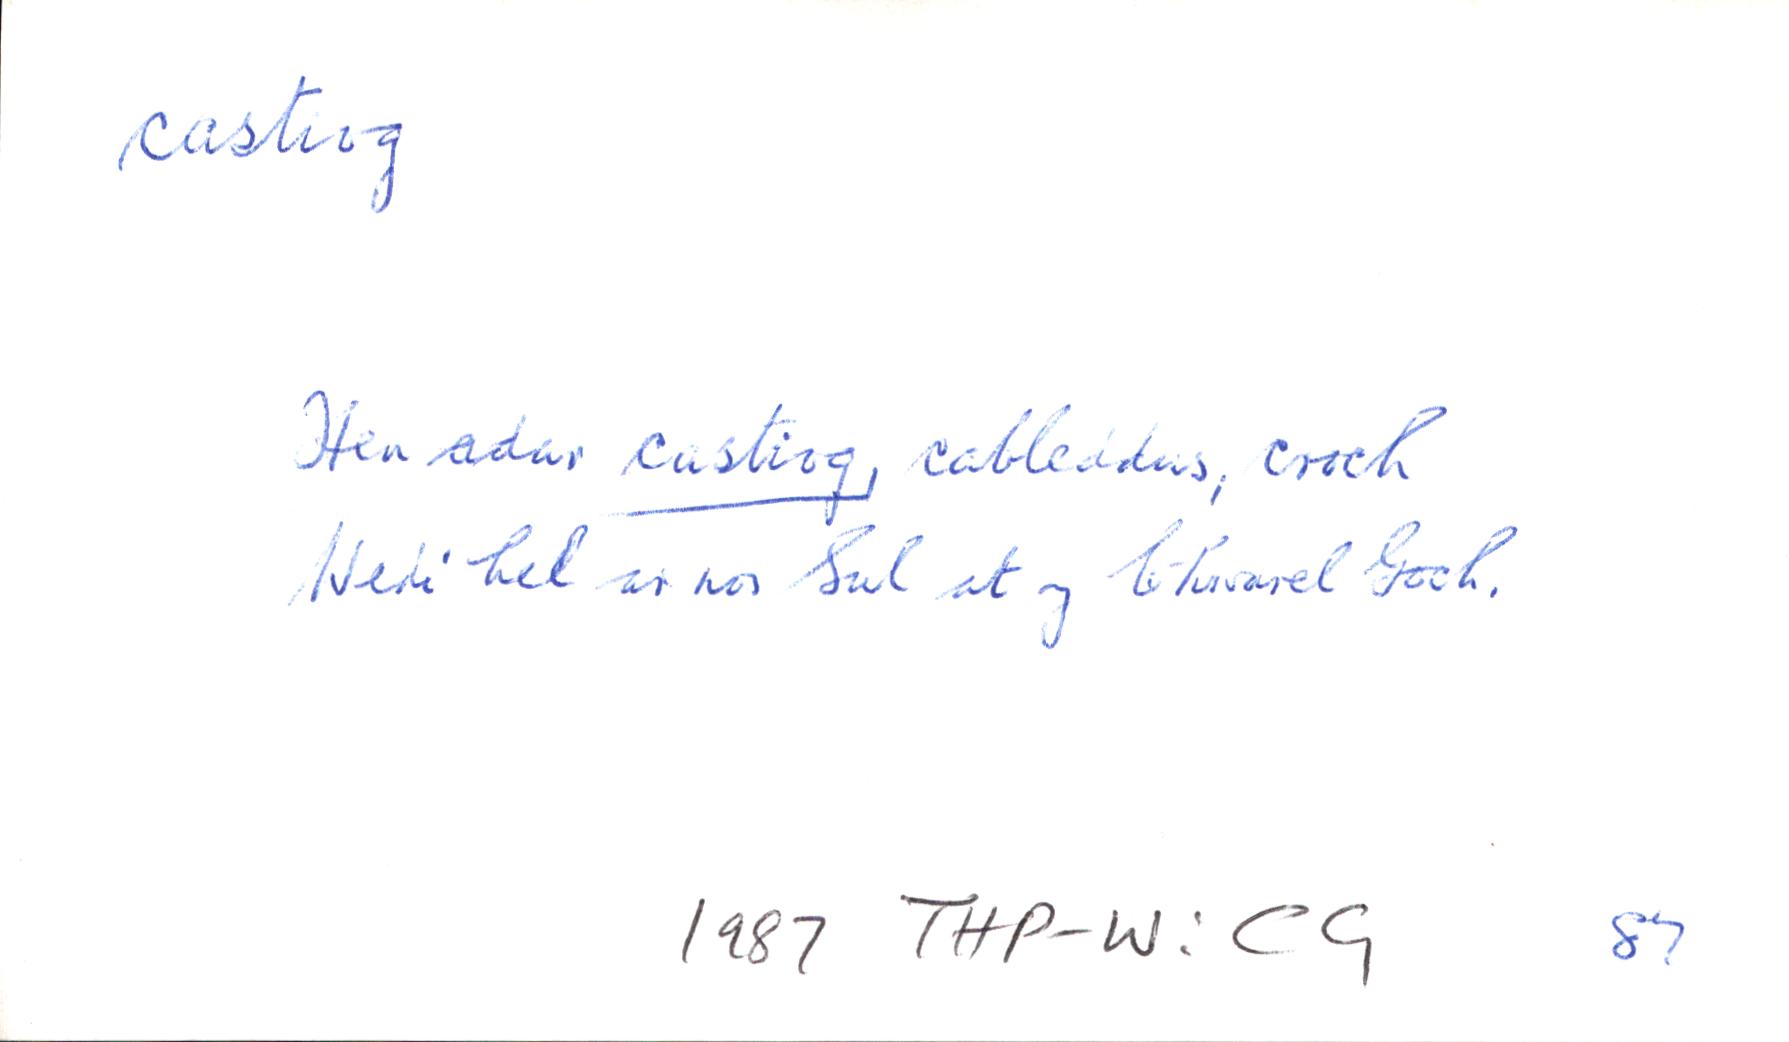 castiog
Hen adar castiog, cableddus, croch
Wedi hel ar nos Sul at y Chwarel Goch.
1987 THP-W: CG 87